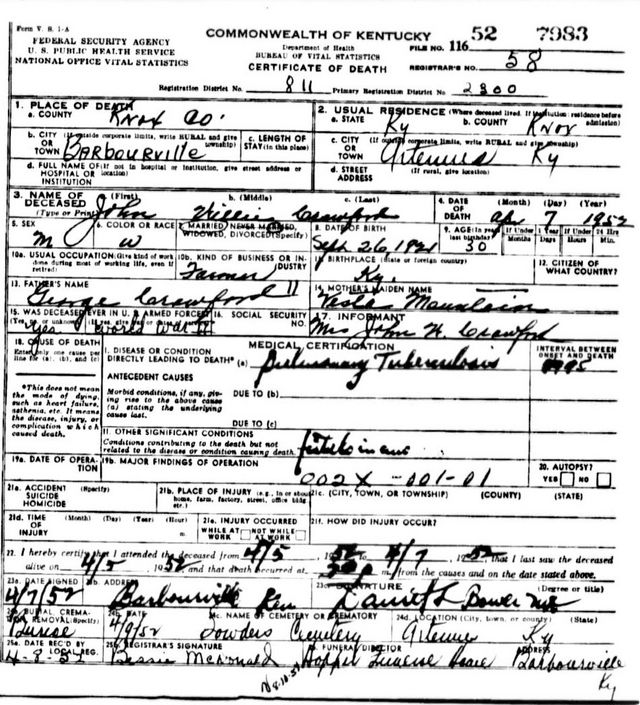 Form V. S. 1-A
FEDERAL SECURITY AGENCY
U. S. PUBLIC HEALTH SERVICE
NATIONAL OFFICE VITAL STATISTICS
COMMONWEALTH OF KENTUCKY
Department of Health
BUREAU OF VITAL STATISTICS
CERTIFICATE OF DEATH
FILE NO. 116 52 7983
REGISTRAR'S NO. 58
Registration District No. 811 Primary Registration District No. 2800
1. PLACE OF DEATH
a. COUNTY Knox Co.
2. USUAL RESIDENCE (Where deceased lived. If institution: residence before admission)
a. STATE Ky b. COUNTY Knox
b. CITY (If outside corporate limits, write RURAL and give township)
OR TOWN Barbourville
c. LENGTH OF STAY (in this place)
c. CITY (If outside corporate limits, write RURAL and give township)
OR TOWN Artemus Ky
d. FULL NAME OF (If not in hospital or institution, give street address or location)
HOSPITAL OR INSTITUTION
d. STREET ADDRESS (If rural, give location)
3. NAME OF DECEASED (Type or Print)
(First) b. (Middle) c. (Last)
John Willie Crawford
4. DATE OF DEATH (Month) (Day) (Year)
Apr 7 1952
5. SEX M
6. COLOR OR RACE W
7. MARRIED, NEVER MARRIED, WIDOWED, DIVORCED (Specify)
8. DATE OF BIRTH Sept 26 1921
9. AGE (In years last birthday) 30
If Under 1 Year Months Days
If Under 24 Hrs Hours Min.
10a. USUAL OCCUPATION (Give kind of work done during most of working life, even if retired)
10b. KIND OF BUSINESS OR INDUSTRY
Farmer
11. BIRTHPLACE (State or foreign country)
Ky.
12. CITIZEN OF WHAT COUNTRY?
13. FATHER'S NAME
George Crawford
14. MOTHER'S MAIDEN NAME
15. WAS DECEASED EVER IN U. S. ARMED FORCES?
(Yes, no or unknown) (If yes, give war or dates of service)
Yes World War II
16. SOCIAL SECURITY NO.
17. INFORMANT
Mrs John W. Crawford
18. CAUSE OF DEATH
Enter only one cause per line for (a), (b), and (c)
MEDICAL CERTIFICATION
INTERVAL BETWEEN ONSET AND DEATH
I. DISEASE OR CONDITION DIRECTLY LEADING TO DEATH* (a) Pulmonary Tuberculosis
*This does not mean the mode of dying, such as heart failure, asthenia, etc. It means the disease, injury, or complication which caused death.
ANTECEDENT CAUSES
Morbid conditions, if any, giving rise to the above cause (a) stating the underlying cause last.
DUE TO (b)
DUE TO (c)
II. OTHER SIGNIFICANT CONDITIONS
Conditions contributing to the death but not related to the disease or condition causing death.
19a. DATE OF OPERATION
19b. MAJOR FINDINGS OF OPERATION
002X -001-01
20. AUTOPSY?
YES NO
21a. ACCIDENT SUICIDE HOMICIDE (Specify)
21b. PLACE OF INJURY (e.g., in or about home, farm, factory, street, office bldg etc.)
21c. (CITY, TOWN, OR TOWNSHIP) (COUNTY) (STATE)
21d. TIME OF INJURY (Month) (Day) (Year) (Hour) m
21e. INJURY OCCURRED
WHILE AT WORK NOT WHILE AT WORK
21f. HOW DID INJURY OCCUR?
22. I hereby certify that I attended the deceased from 4/5, 1952 to 4/7, 1952, that I last saw the deceased
alive on 4/5 1952, and that death occurred at m., from the causes and on the date stated above.
23a. DATE SIGNED 4/7/52
23b. ADDRESS Barbourville Ken
23c. SIGNATURE (Degree or title)
24a. BURIAL, CREMATION, REMOVAL (Specify)
24b. DATE 4/9/52
24c. NAME OF CEMETERY OR CREMATORY
Cemetery
24d. LOCATION (City, town, or county) (State)
Artemus Ky
25a. DATE REC'D BY LOCAL REG. 4-8-52
25b. REGISTRAR'S SIGNATURE Bessie McDonald
FUNERAL DIRECTOR ADDRESS
Hopper Funeral Home Barbourville
Ky